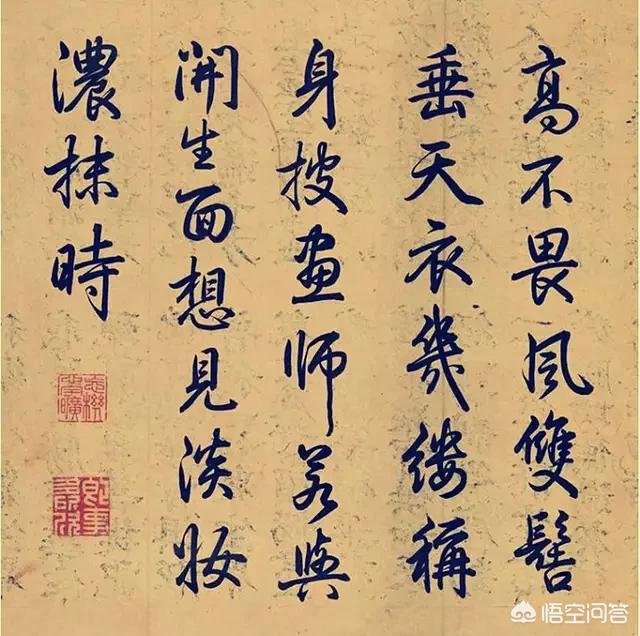 高不畏風雙髻
垂天衣幾縷稱
身披畫師若與
開生面想見淡妝
濃抹時
悟空问答